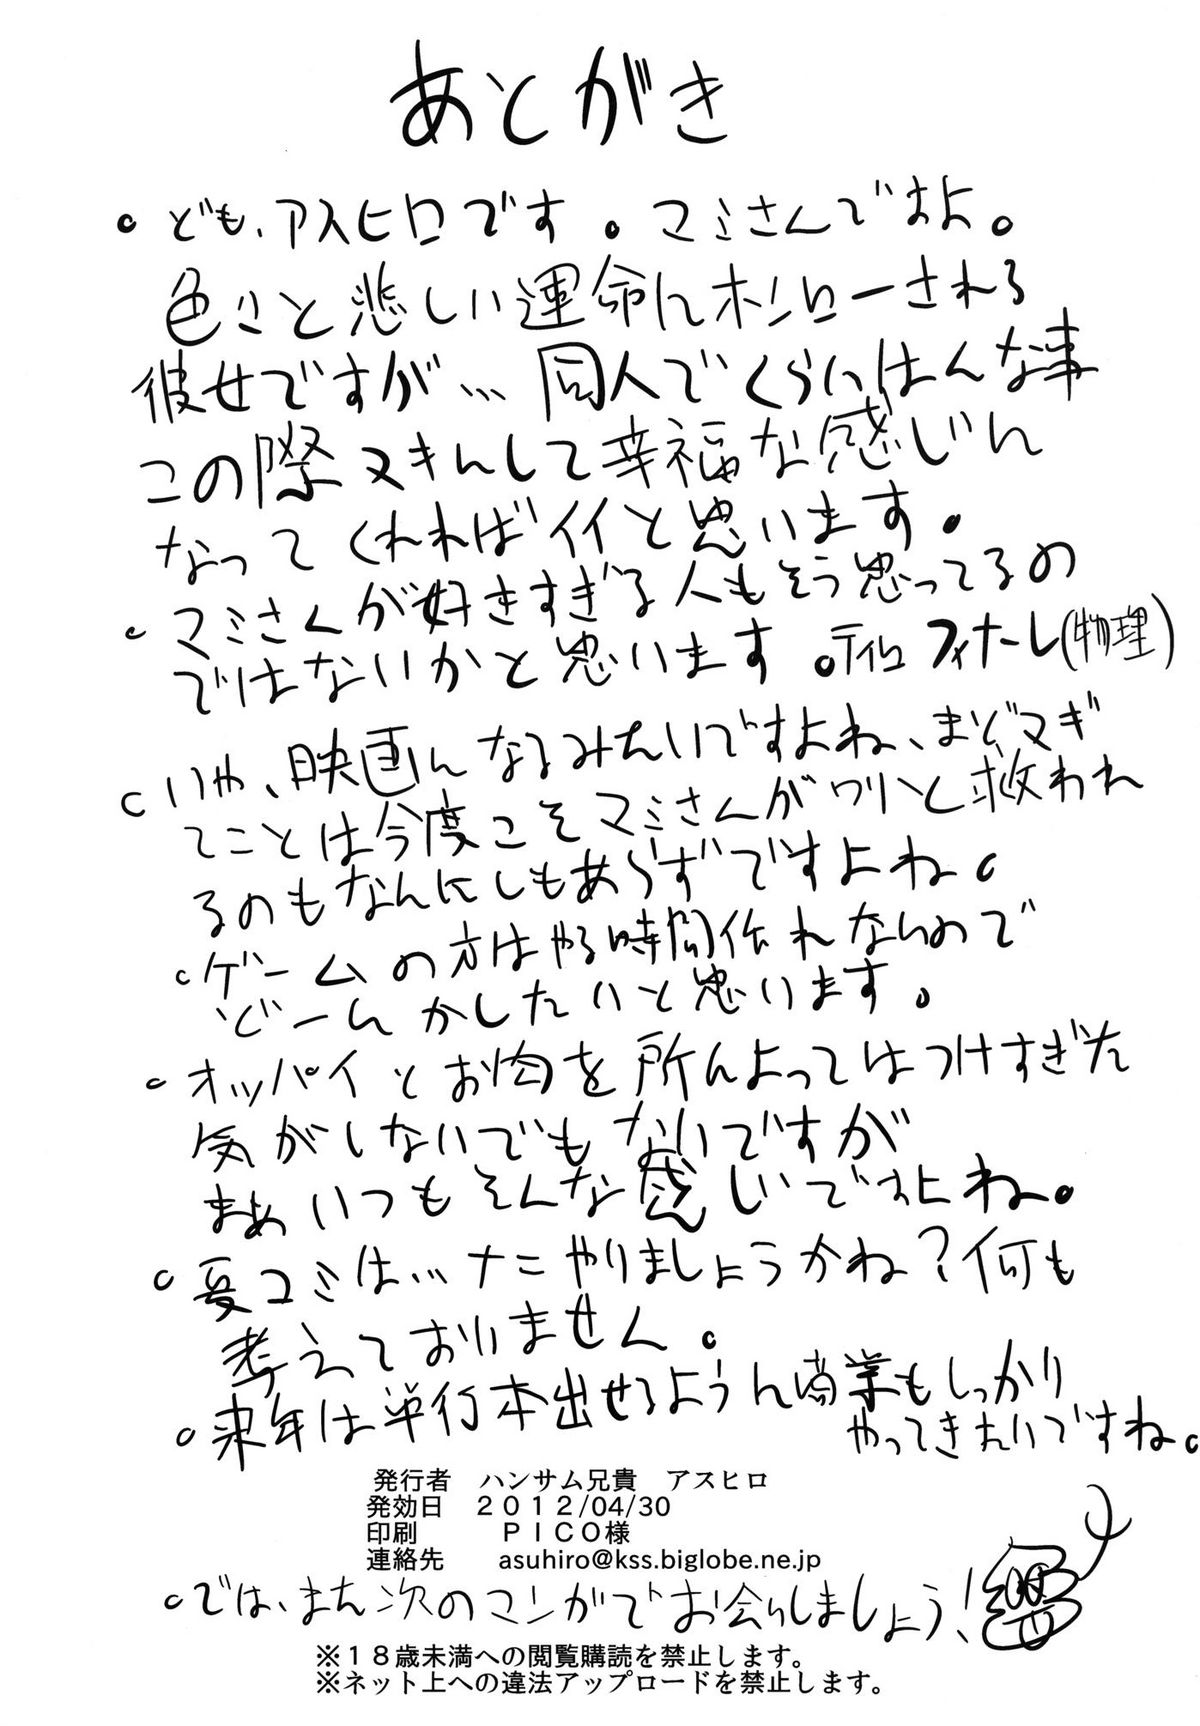 あとがき
。ども、アスヒロです。マミさんですよ。
色々と悲しい運命にホンローされる
彼女ですが…同人でくらいはんな事
この際ヌキにして幸福な感じに
なってくれればイイと思います。
。マミさんが好きすぎる人もそう思ってるの
ではないかと思います。ティロ フィナーレ(物理)
。いや、映画になるみたいですよね、まどマギ
てことは今度こそマミさんがワリと救われ
るのもなんにしもあらずですよね。
。ゲームの方はやる時間作れないので
どーにかしたいと思います。
。オッパイとお肉を所によってはつけすぎた
気がしないでもないですが
まぁいつもそんな感じですよね。
。夏コミは…ナニやりましょうかね?何も
考えておりません。
。来年は単行本出せるように商業もしっかり
やってきたいですね。
発行者 ハンサム兄貴 アスヒロ
発効日 2012/04/30
印刷 PICO様
連絡先 asuhiro@kss.biglobe.ne.jp
。では、また次のマンガでお会いしましょう!
※18歳未満への閲覧購読を禁止します。
※ネット上への違法アップロードを禁止します。